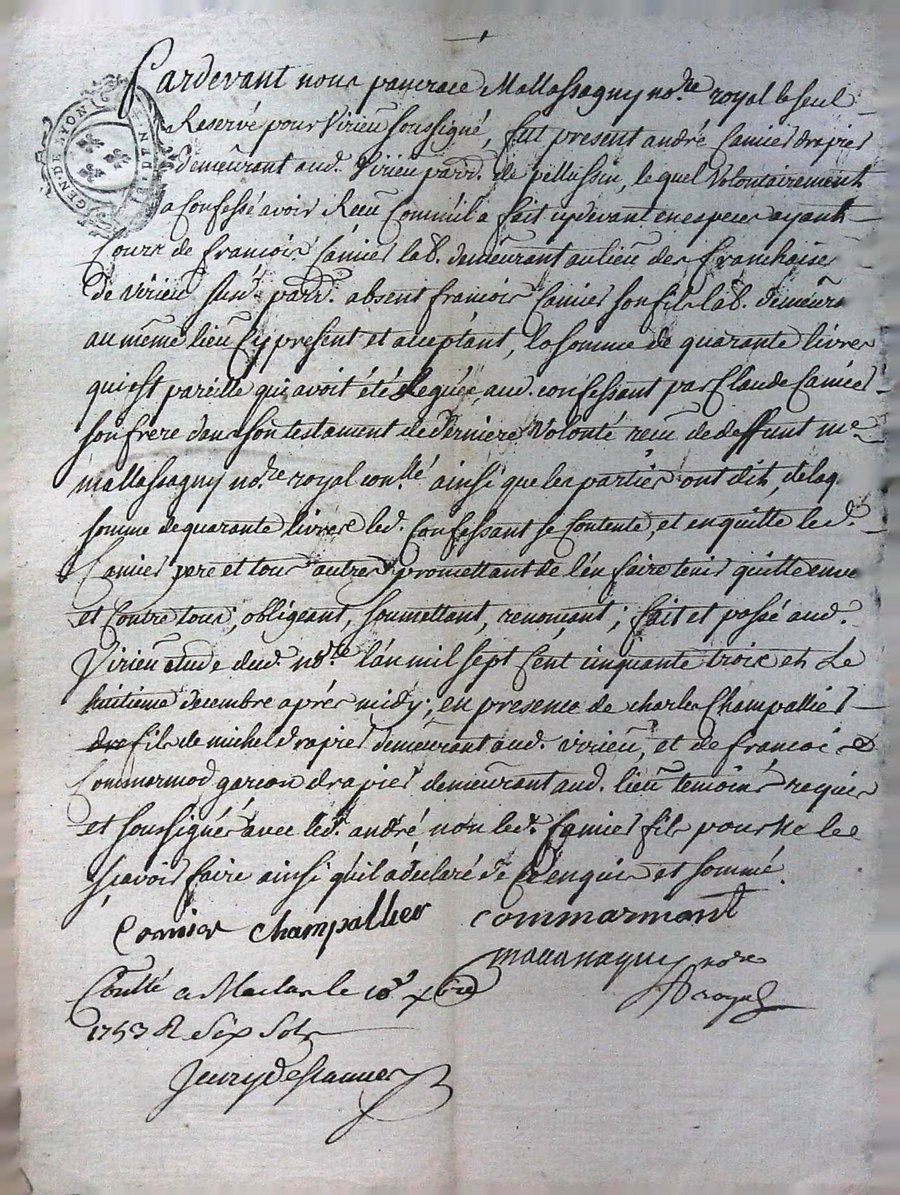 GEN DE LYON
Pardevant nous pancrace Mallassagny no.re royal le seul
Reservé pour Virieu soussigné, fut present andré Camier drapier
demeurant aud. Virieu parr. de pellussin, lequel Volontairement
a Confessé avoir Receu Comm'il a fait cy devant en especes ayant
Cours de francois Camier lab. demeurant au lieu des franchises
de virieu parr. absent francois Camier son fils lab. demeur.
au même lieu Cy present et acceptant, la somme de quarante livres
qui est pareille qui avoit été leguée aud. confessant par Claude Camier
son frere dans son testament de derniere Volonté receu de deffunt me
mallassagny no.re royal con.llé ainsi que les parties ont dit, delaq.
somme de quarante livres led. Confessant se Contente, et en quitte led.
Camier pere et tous autres promettant de l'en faire tenir quitte enve
et Contre tous, obligeant, soumettant, renonçant; fait et passé aud.
Virieu etude dud. no.re l'an mil sept Cent cinquante trois et Le
huitieme decembre après midy; en presence de charles Champallier
fils de michel drapier demeurant aud. virieu, et de francois
Commarmod garcon drapier demeurant aud. lieu temoins requis
et soussignés avec led. andré non led. Camier fils pour ne le
sçavoir faire ainsi qu'il a declaré de ce enquis et sommé.
Camier Champallier Commarmont
no.re
royal
Con.llé a Maclas le 10 xbre
1753 R Six Sols